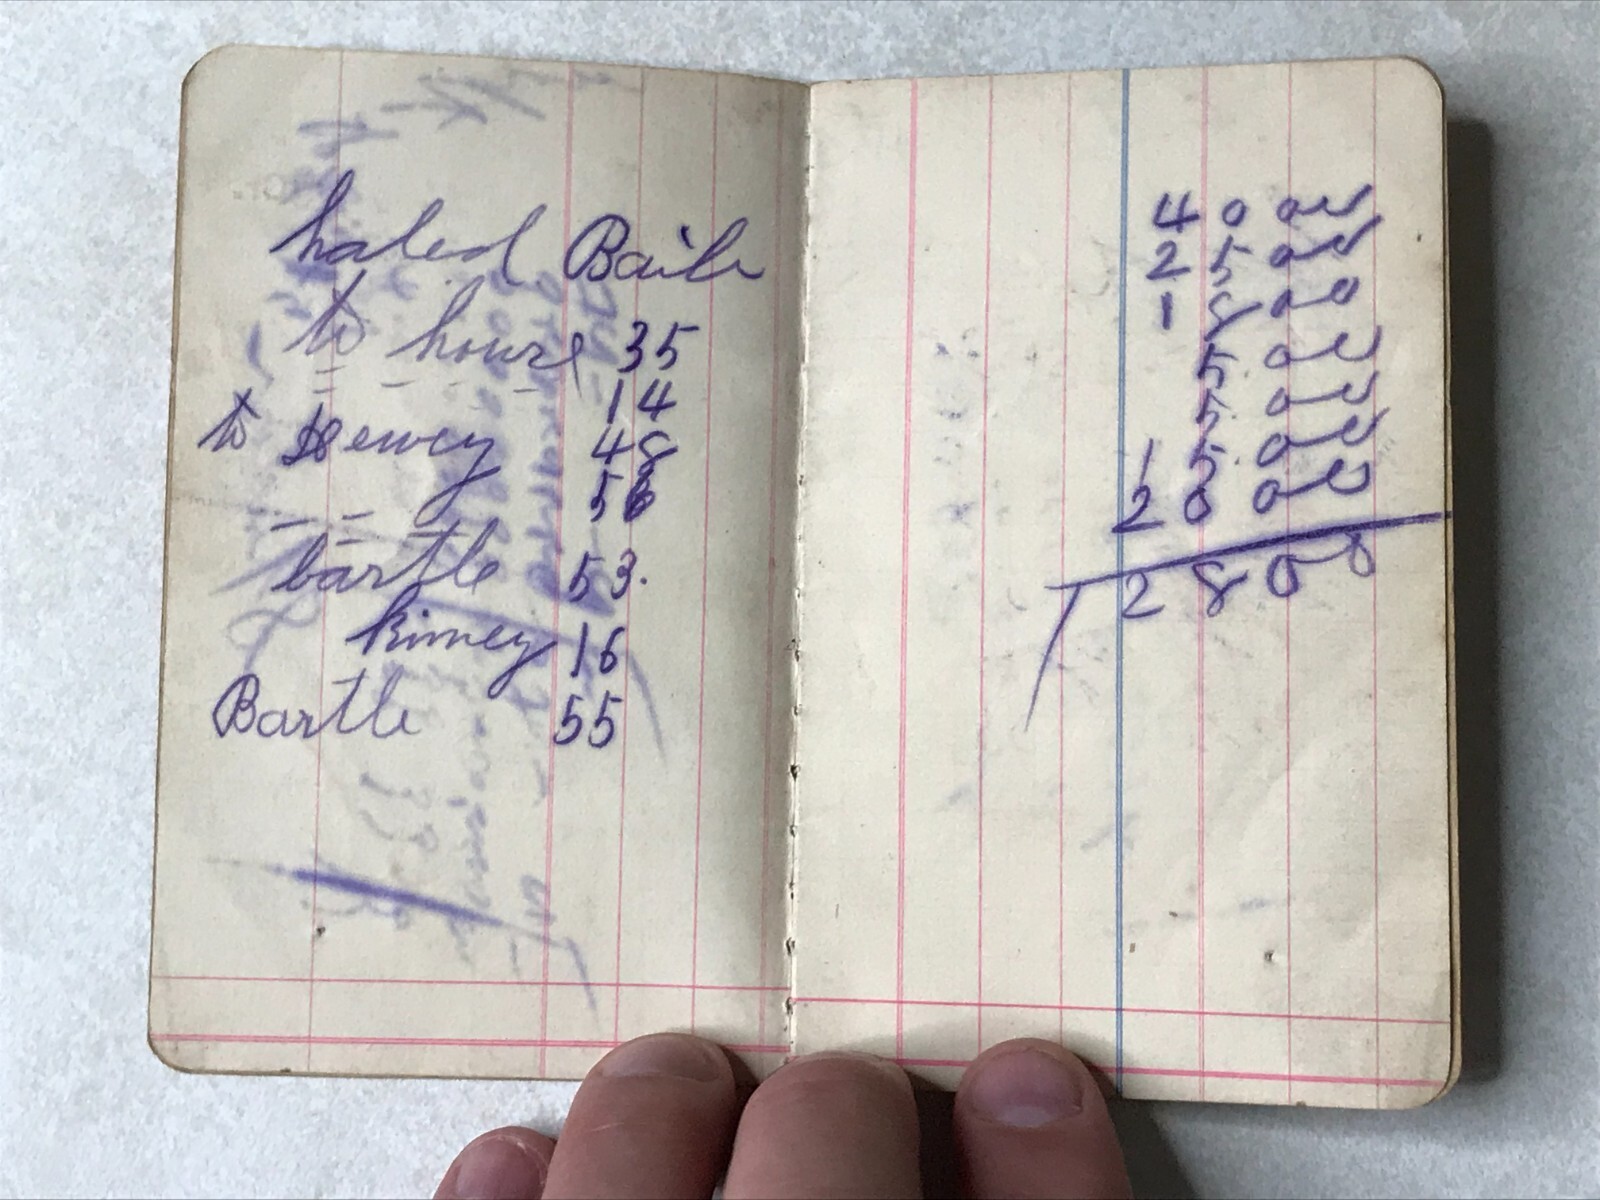 haled Baile
to house 35
- - - - 14
to Dewey 48
- - - 56
bartle 53.
kinney 16
Bartle 55
40 00
25 00
18 00
5 00
5 00
15 00
20 00
T 28 00